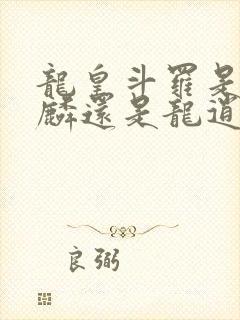 龍皇斗羅是
麟還是龍逍
良弼